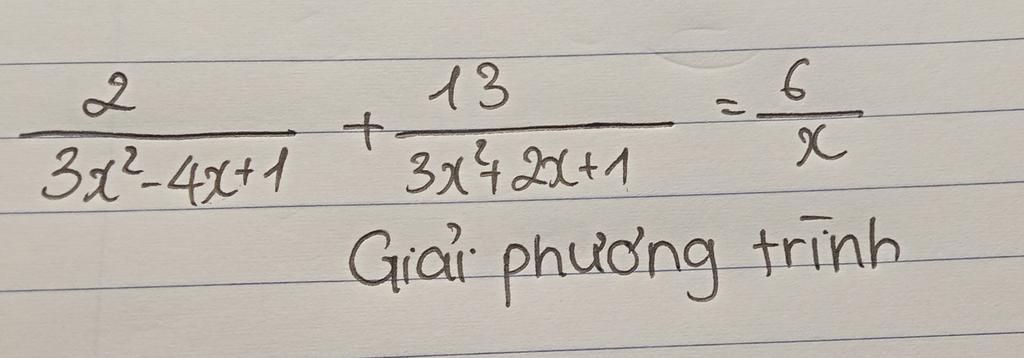 2/(3x²-4x+1) + 13/(3x²+2x+1) = 6/x
Giải phương trình